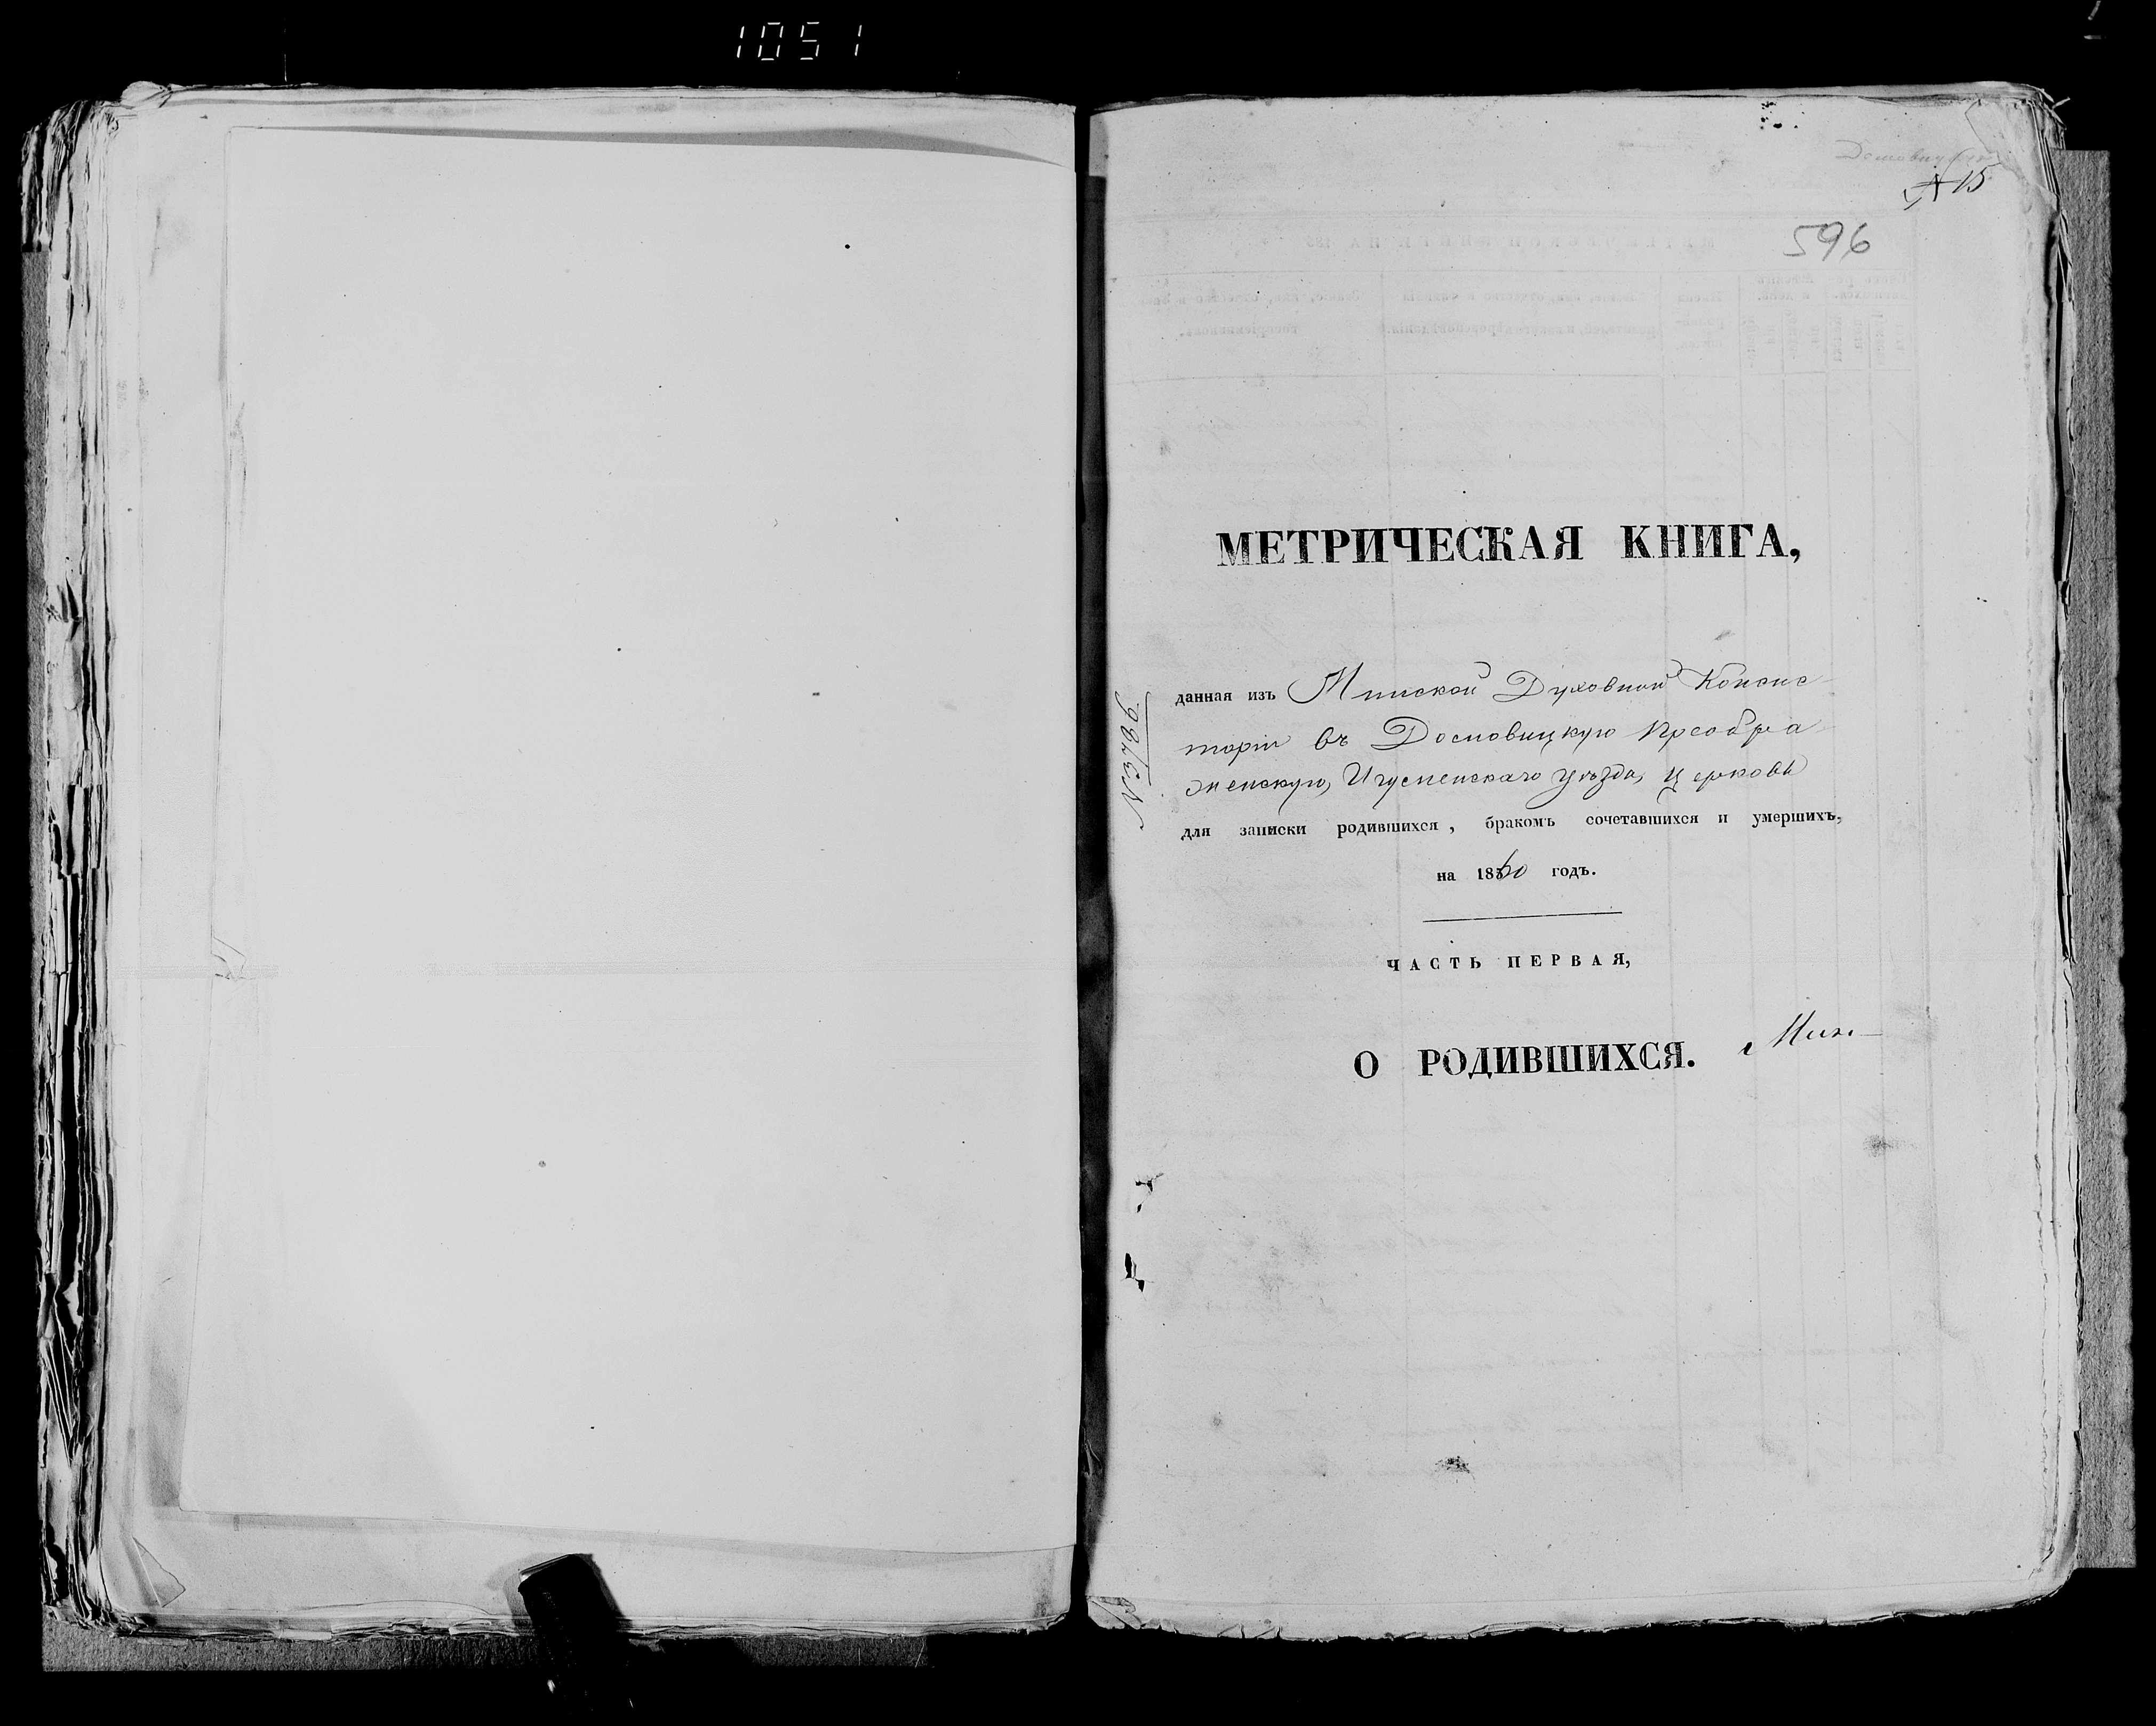 1051
№ 15
596
МЕТРИЧЕСКАЯ КНИГА,
данная изъ Минской Духовной Консис
торіи въ Досновицкую Преобра
женскую, Игуменскаго уѣзда, церковь
для записки родившихся, бракомъ сочетавшихся и умершихъ,
на 1860 годъ.
ЧАСТЬ ПЕРВАЯ,
О РОДИВШИХСЯ.
Мин
№ 3786